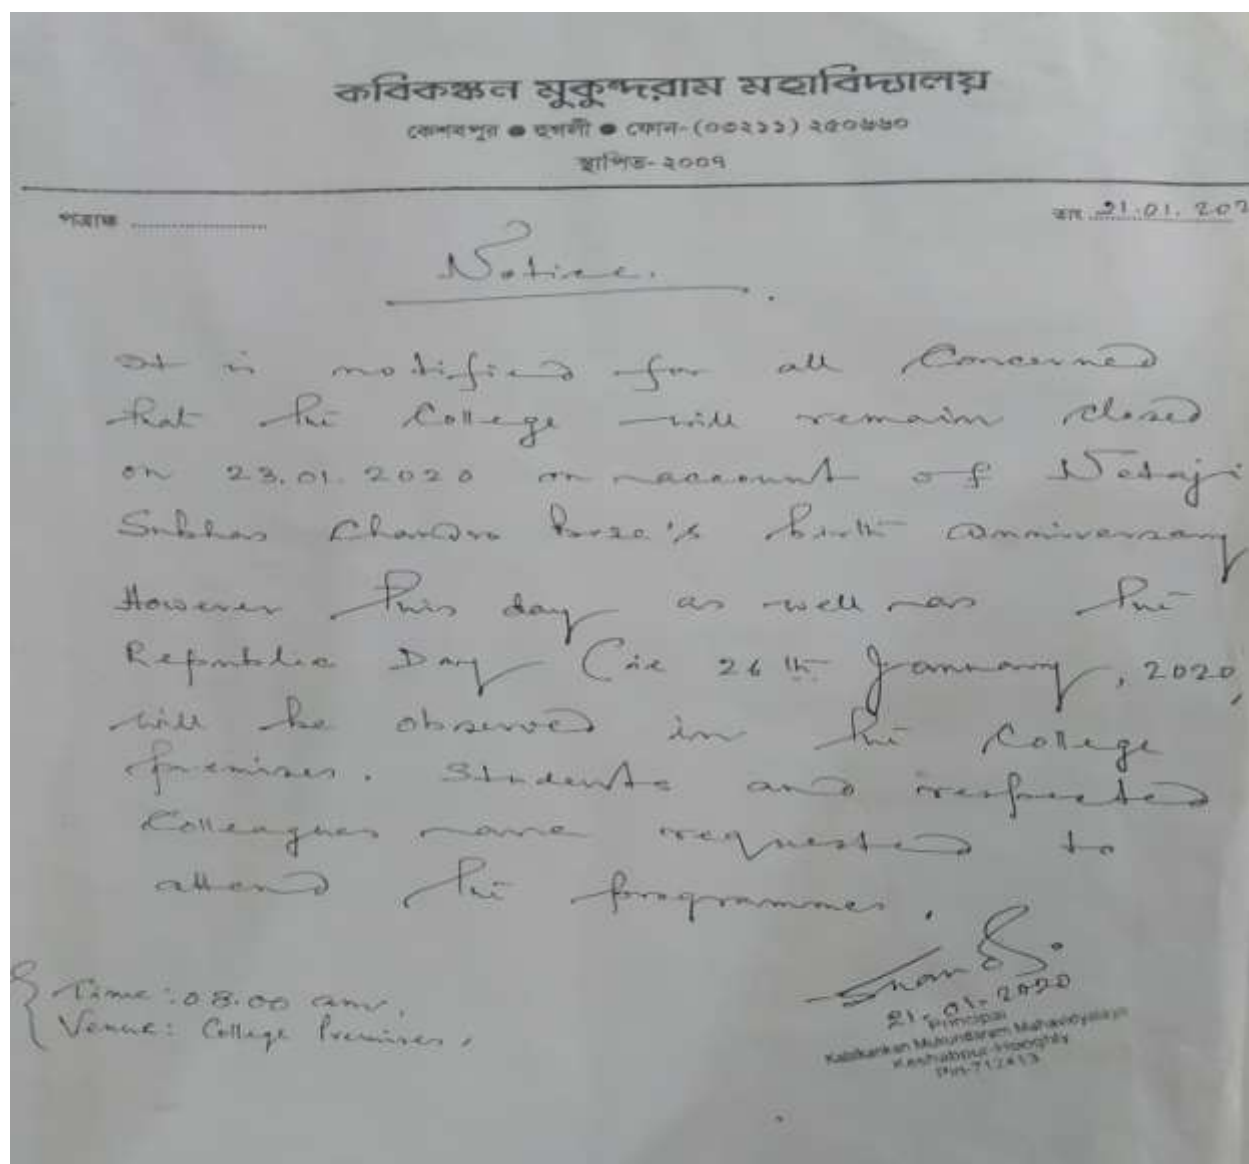 কবিকঙ্কন মুকুন্দরাম মহাবিদ্যালয়
কেশবপুর ● হুগলী ● ফোন-(০৩২১১) ২৫০৬৬০
স্থাপিত-২০০৭
পত্রাঙ্ক ........................ তাং 21.01.202
Notice.
It is notified for all Concerned
that the College will remain closed
on 23.01.2020 on account of Netaji
Subhas Chandra Bose's birth anniversary
However this day as well as the
Republic Day (ie 26th January, 2020,
will be observed in the College
premises. Students and respected
Colleagues are requested to
attend the programmes.
Time: 08.00 am.
Venue: College Premises,
21.01.2020
Principal
Kabikankan Mukundaram Mahavidyalaya
Keshabpur-Hooghly
Pin-712413